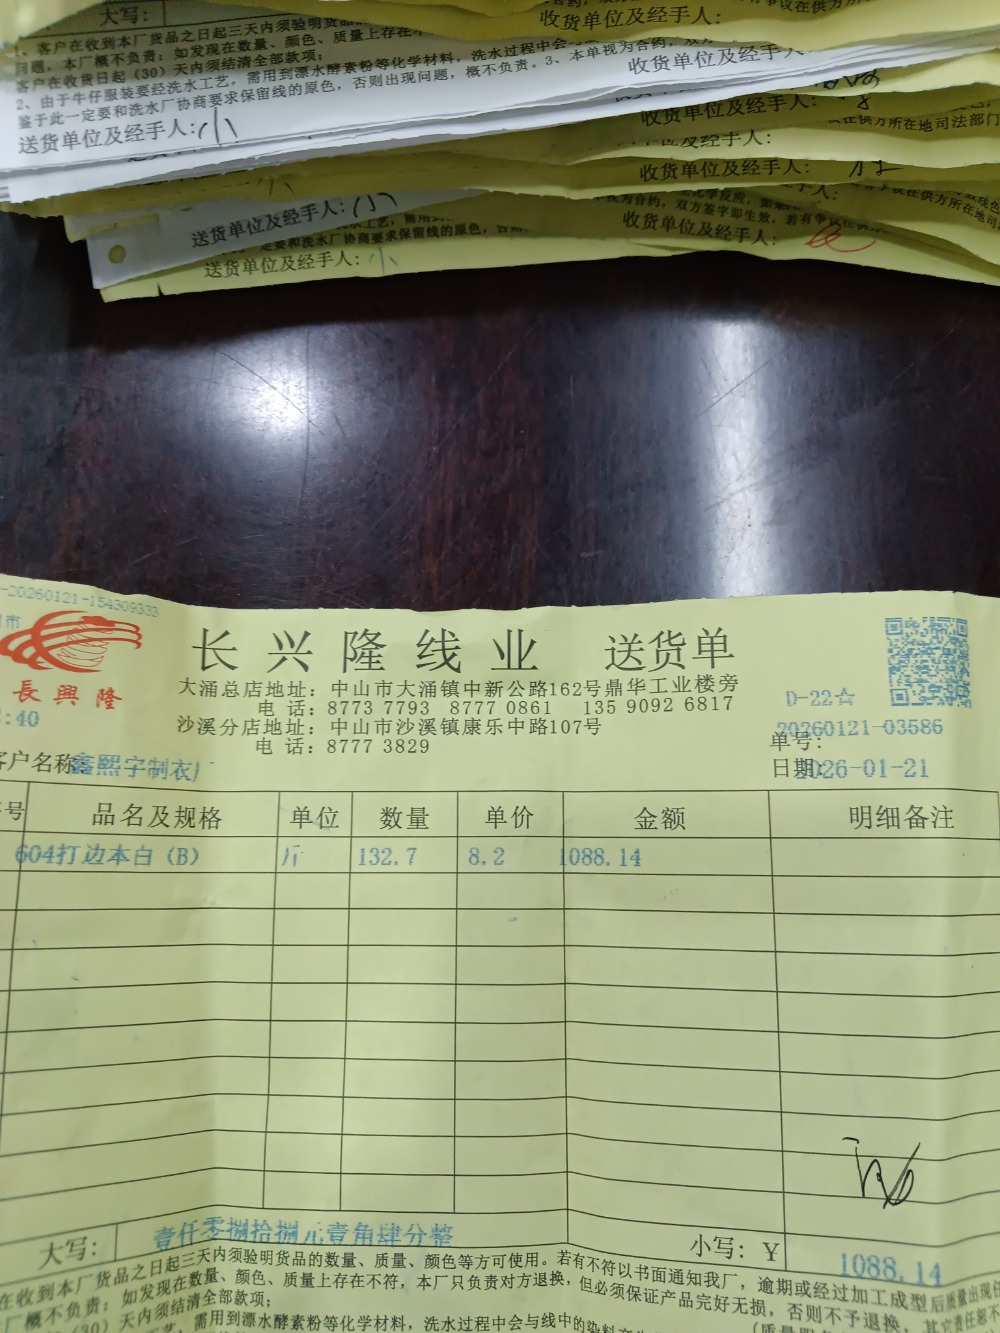 大写:
收货单位及经手人:
1、客户在收到本厂货品之日起三天内须验明货品
问题，本厂概不负责；如发现在数量、颜色、质量上存在
客户在收货日起（30）天内须结清全部款项；
2、由于牛仔服装要经洗水工艺，需用到漂水酵素粉等化学材料，洗水过程中会
鉴于此一定要和洗水厂协商要求保留线的原色，否则出现问题，概不负责。3、本单视为合约，双方
收货单位及经手人:
送货单位及经手人:小
收货单位及经手人:
在供方所在地司法部门
收货单位及经手人:
送货单位及经手人:
视为合约，双方签字即生效，若有争议在供方所在地司
收货单位及经手人:
定要和洗水厂协商要求保留线的原色，
送货单位及经手人:小
-20260121-154309333
市
長興隆
:40
长兴隆线业 送货单
大涌总店地址：中山市大涌镇中新公路162号鼎华工业楼旁
电 话：8773 7793 8777 0861 135 9092 6817
沙溪分店地址：中山市沙溪镇康乐中路107号
电 话：8777 3829
D-22☆
单号: 20260121-03586
日期: 2026-01-21
客户名称: 鑫熙宇制衣厂
号 品名及规格 单位 数量 单价 金额 明细备注
604打边本白（B） 斤 132.7 8.2 1088.14
大写: 壹仟零捌拾捌元壹角肆分整 小写: ¥ 1088.14
在收到本厂货品之日起三天内须验明货品的数量、质量、颜色等方可使用。若有不符以书面通知我厂，逾期或经过加工成型后质量出现任
厂概不负责；如发现在数量、颜色、质量上存在不符，本厂只负责对方退换，但必须保证产品完好无损，否则不予退换，其它责任部不
（30）天内须结清全部款项；
工艺，需用到漂水酵素粉等化学材料，洗水过程中会与线中的染料产